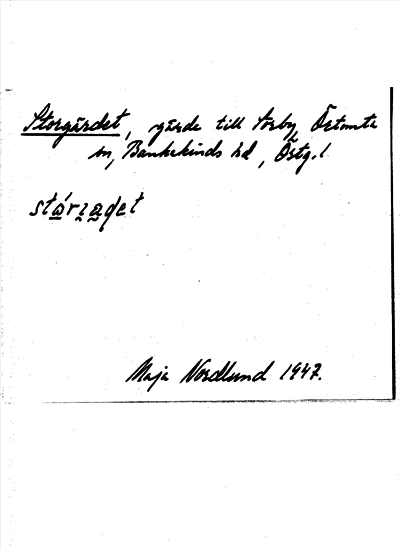 Storgärdet, gärde till Torby, Örtomta
sn, Bankekinds hd, Östg. l
stárzade̱t
Maja Nordlund 1947.